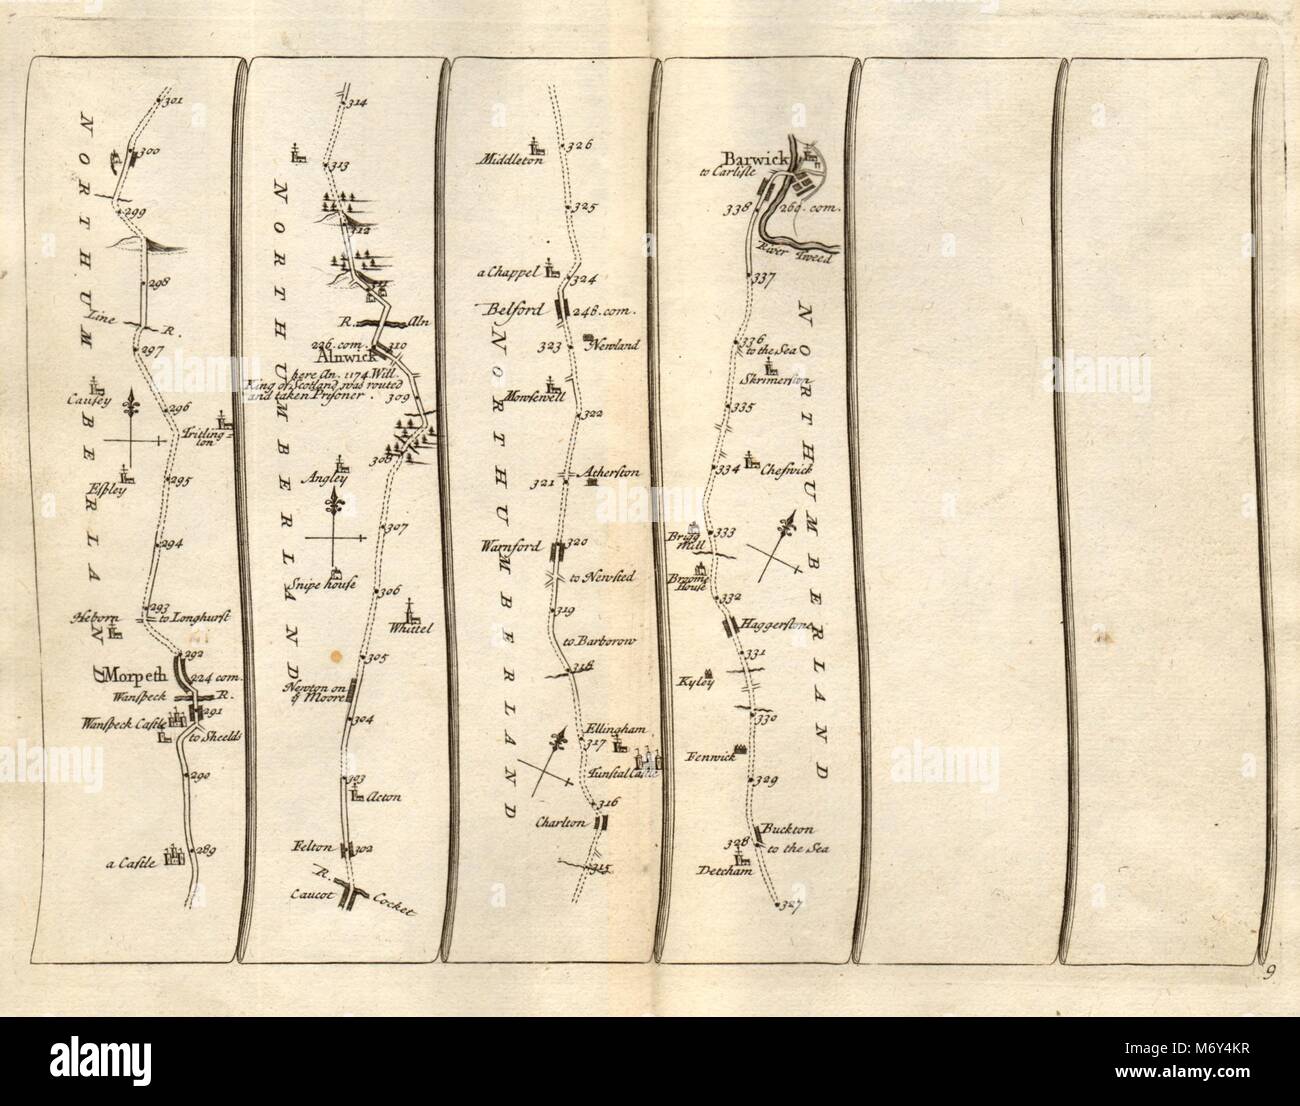 NORTHUMBERLAND
301
300
299
298
Line R.
297
Causey
296
Tritling=
ton
Espley
295
294
293
Heborn
to Longhurst
292
Morpeth
224 com.
Wanspeck R.
291
Wanspeck Castle
to Sheelds
290
289
a Castle
NORTHUMBERLAND
314
313
312
311
R. Aln
226. com.
310
Alnwick
here An. 1174 Will.
King of Scotland was routed
and taken Prisoner.
309
308
Angley
307
Snipe house
306
Whittel
305
Newton on
ye Moore
304
303
Acton
Felton
302
R.
Caucot
Cocket
NORTHUMBERLAND
326
Middleton
325
a Chappel
324
Belford
248. com.
323
Newland
Mowsewell
322
Atherston
321
Warnford
320
to Newsted
319
to Barborow
318
Ellingham
317
Tunstal Castle
316
Charlton
315
NORTHUMBERLAND
Barwick
to Carlisle
338
260. com.
River Tweed
337
336
to the Sea
Skrimerston
335
334
Cheswick
333
Brigg
Mill
Broome
House
332
Haggerstone
331
Kyley
330
Fenwick
329
Buckton
328
to the Sea
Detcham
327
9
alamy
alamy
alamy
alamy
M6Y4KR
www.alamy.com